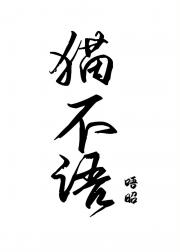 猫不语
晤昭